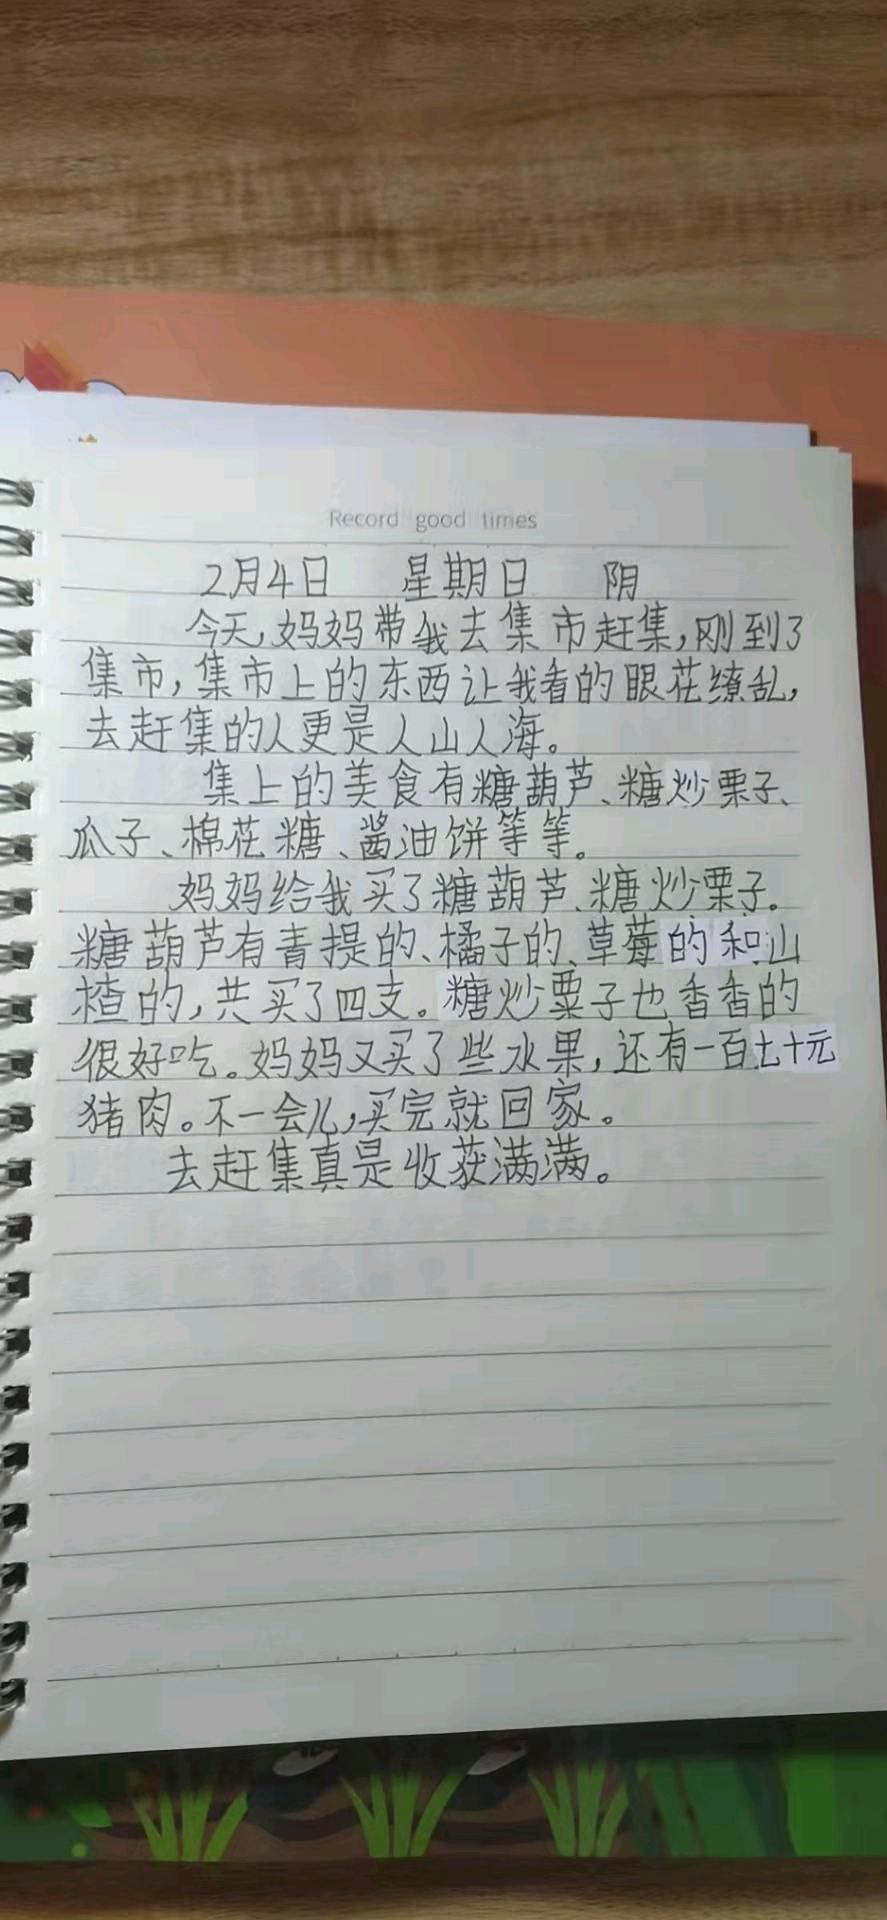 Record good times
2月4日 星期日 阴
今天,妈妈带我去集市赶集,刚到了
集市,集市上的东西让我看的眼花缭乱,
去赶集的人更是人山人海。
集上的美食有糖葫芦、糖炒栗子、
瓜子、棉花糖、酱油饼等等。
妈妈给我买了糖葫芦、糖炒栗子。
糖葫芦有青提的、橘子的、草莓的和山
楂的,共买了四支。糖炒粟子也香香的
很好吃。妈妈又买了些水果,还有一百七十元
猪肉。不一会儿,买完就回家。
去赶集真是收获满满。